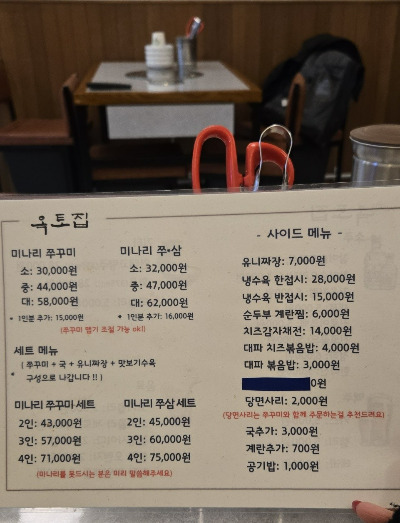 옥토집
미나리 쭈꾸미
소: 30,000원
중: 44,000원
대: 58,000원
* 1인분 추가: 15,000원
미나리 쭈•삼
소: 32,000원
중: 47,000원
대: 62,000원
* 1인분 추가: 16,000원
(쭈꾸미 맵기 조절 가능 ok!)
세트 메뉴
( 쭈꾸미 + 국 + 유니짜장 + 맛보기수육
* 구성으로 나갑니다 !! )
미나리 쭈꾸미 세트
2인: 43,000원
3인: 57,000원
4인: 71,000원
미나리 쭈삼 세트
2인: 45,000원
3인: 60,000원
4인: 75,000원
(미나리를 못드시는 분은 미리 말씀해주세요)
- 사이드 메뉴 -
유니짜장: 7,000원
냉수육 한접시: 28,000원
냉수육 반접시: 15,000원
순두부 계란찜: 6,000원
치즈감자채전: 14,000원
대파 치즈볶음밥: 4,000원
대파 볶음밥: 3,000원
0원
당면사리: 2,000원
(당면사리는 쭈꾸미와 함께 주문하는걸 추천드려요)
국추가: 3,000원
계란추가: 700원
공기밥: 1,000원